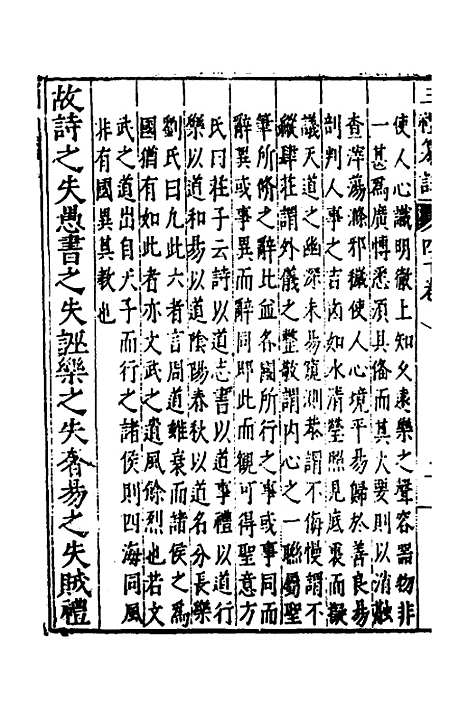 三禮纂註 四十卷
使人心識明徹上知久遠樂之聲容器物非
一甚爲廣博悉須具偹而其大要則以消融
查滓蕩滌邪穢使人心境平易歸於善良易
剖判人事之吉凶如水清瑩照見底裏而擬
議天道之幽深未易窺測恭謂不侮慢謂不
縱肆莊謂外儀之整敬謂内心之一聯屬聖
筆所脩之辭比並各國所行之事或事同而
辭異或事異而辭同即此而觀可得聖意方
氏曰莊子云詩以道志書以道事禮以道行
樂以道和易以道陰陽春秋以道名分長樂
劉氏曰凡此六者言周道雖衰而諸侯之爲
國猶有如此者亦文武之遺風餘烈也若文
武之道出自天子而行之諸侯則四海同風
非有國異其敎也
故詩之失愚書之失誣樂之失奢易之失賊禮